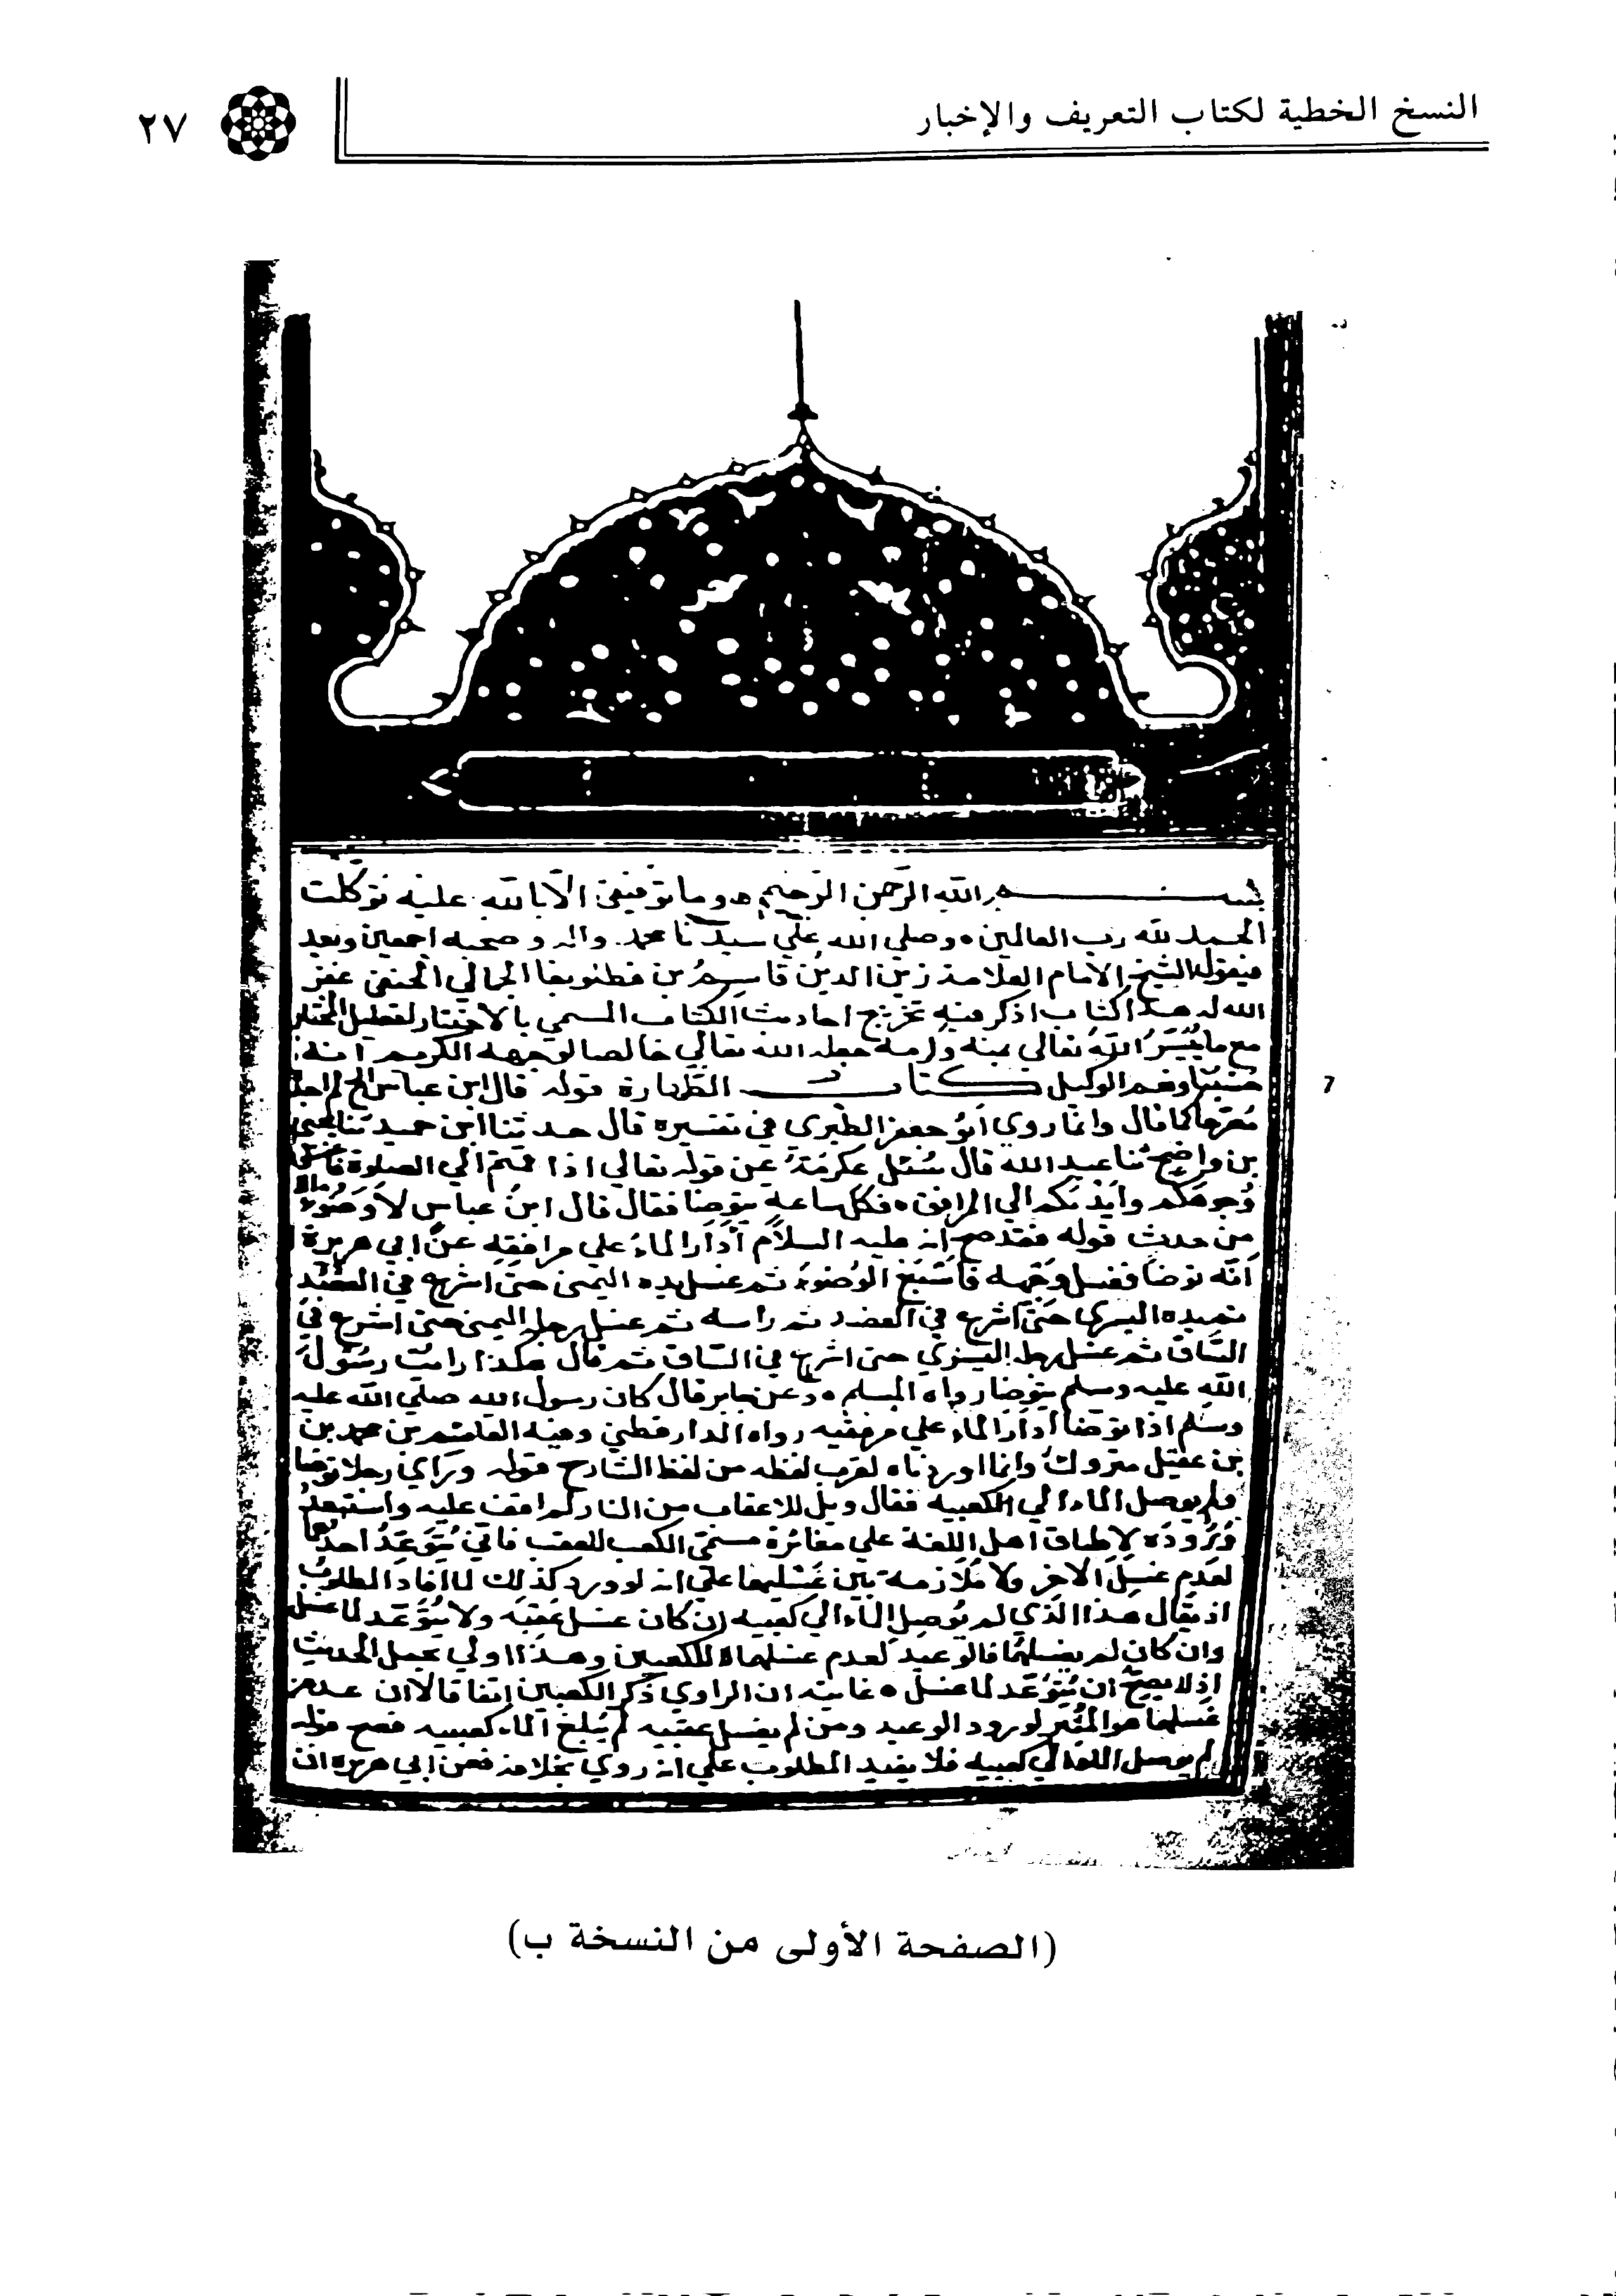 النسخ الخطية لكتاب التعريف والإخبار
٢٧
بسم الله الرحمن الرحيم ه وما توفيقي الا بالله عليه توكلت
الحمد لله رب العالمين ه وصلي الله علي سيدنا محمد واله وصحبه اجمعين وبعد
فيقول الشيخ الامام العلامة زين الدين قاسم بن قطلوبغا الجمالي الحنفي غفر
الله له هذا كتاب اذكر فيه تخريج احاديث الكتاب المسمي بالاختيار لتعليل المختار
مع ما ييسر الله تعالي بمنه وكرمه جعله الله تعالي خالصا لوجهه الكريم انه
حسبنا ونعم الوكيل كتاب الطهارة قوله قال ابن عباس الخ لم اجد
مخرجا كما قال وانما روي ابو جعفر الطبري في تفسيره قال حدثنا ابن حميد ثنا يحيى
بن واضح ثنا عبيد الله قال سئل عكرمة عن قوله تعالي اذا قمتم الي الصلوة فاغسلوا
وجوهكم وايديكم الي المرافق ه فكل ساعة يتوضا فقال قال ابن عباس لا وضوء
من حدث قوله فقد صح انه عليه السلام أدار الماء علي مرافقه عن ابي هريرة
انه توضا فغسل وجهه فأسبغ الوضوء ثم غسل يده اليمني حتى اشرع في العضد
ثم يده اليسرى حتى اشرع في العضد ثم راسه ثم غسل رجله اليمنى حتى اشرع في
الساق ثم غسل رجله اليسرى حتى اشرع في الساق ثم قال هكذا رايت رسول
الله عليه وسلم يتوضا رواه المسلم ه وعن جابر قال كان رسول الله صلي الله عليه
وسلم اذا توضأ أدار الماء علي مرفقيه رواه الدارقطني وفيه القاسم بن محمد بن
بن عقيل متروك وانما اوردناه لقرب لفظه من لفظ الشارح قوله وراي رجلا توضا
ولم يوصل الماء الي الكعبيه فقال ويل للاعقاب من النار لم اقف عليه واستبعد
وروده لاطباق اهل اللغة علي مغائرة مسمى الكعب للعقب فاني يتوعد احدهما
لعدم غسل الاخر ولا ملازمة بين غسليهما علي انه لو ورد كذلك لما افاد المطلوب
اذ يقال هذا الذي لم يوصل الماء الي كعبيه ان كان غسل عقبه ولا يتوعد لما غسل
وان كان لم يغسلهما فالوعيد لعدم غسلهما لا للكعبين وهذا اولي بحمل الحديث
اذ لا يصح ان يتوعد لما غسل ه غايته ان الراوي ذكر الكعبين اتفاقا لا ان عدم
غسلهما هو المثير لورود الوعيد ومن لم يغسل عقبيه لم يبلغ الماء كعبيه فصح قوله
لم يوصل الي كعبيه فلا يفيد المطلوب علي انه روي بخلافه فعن ابي هريرة ان
7
(الصفحة الأولى من النسخة ب)